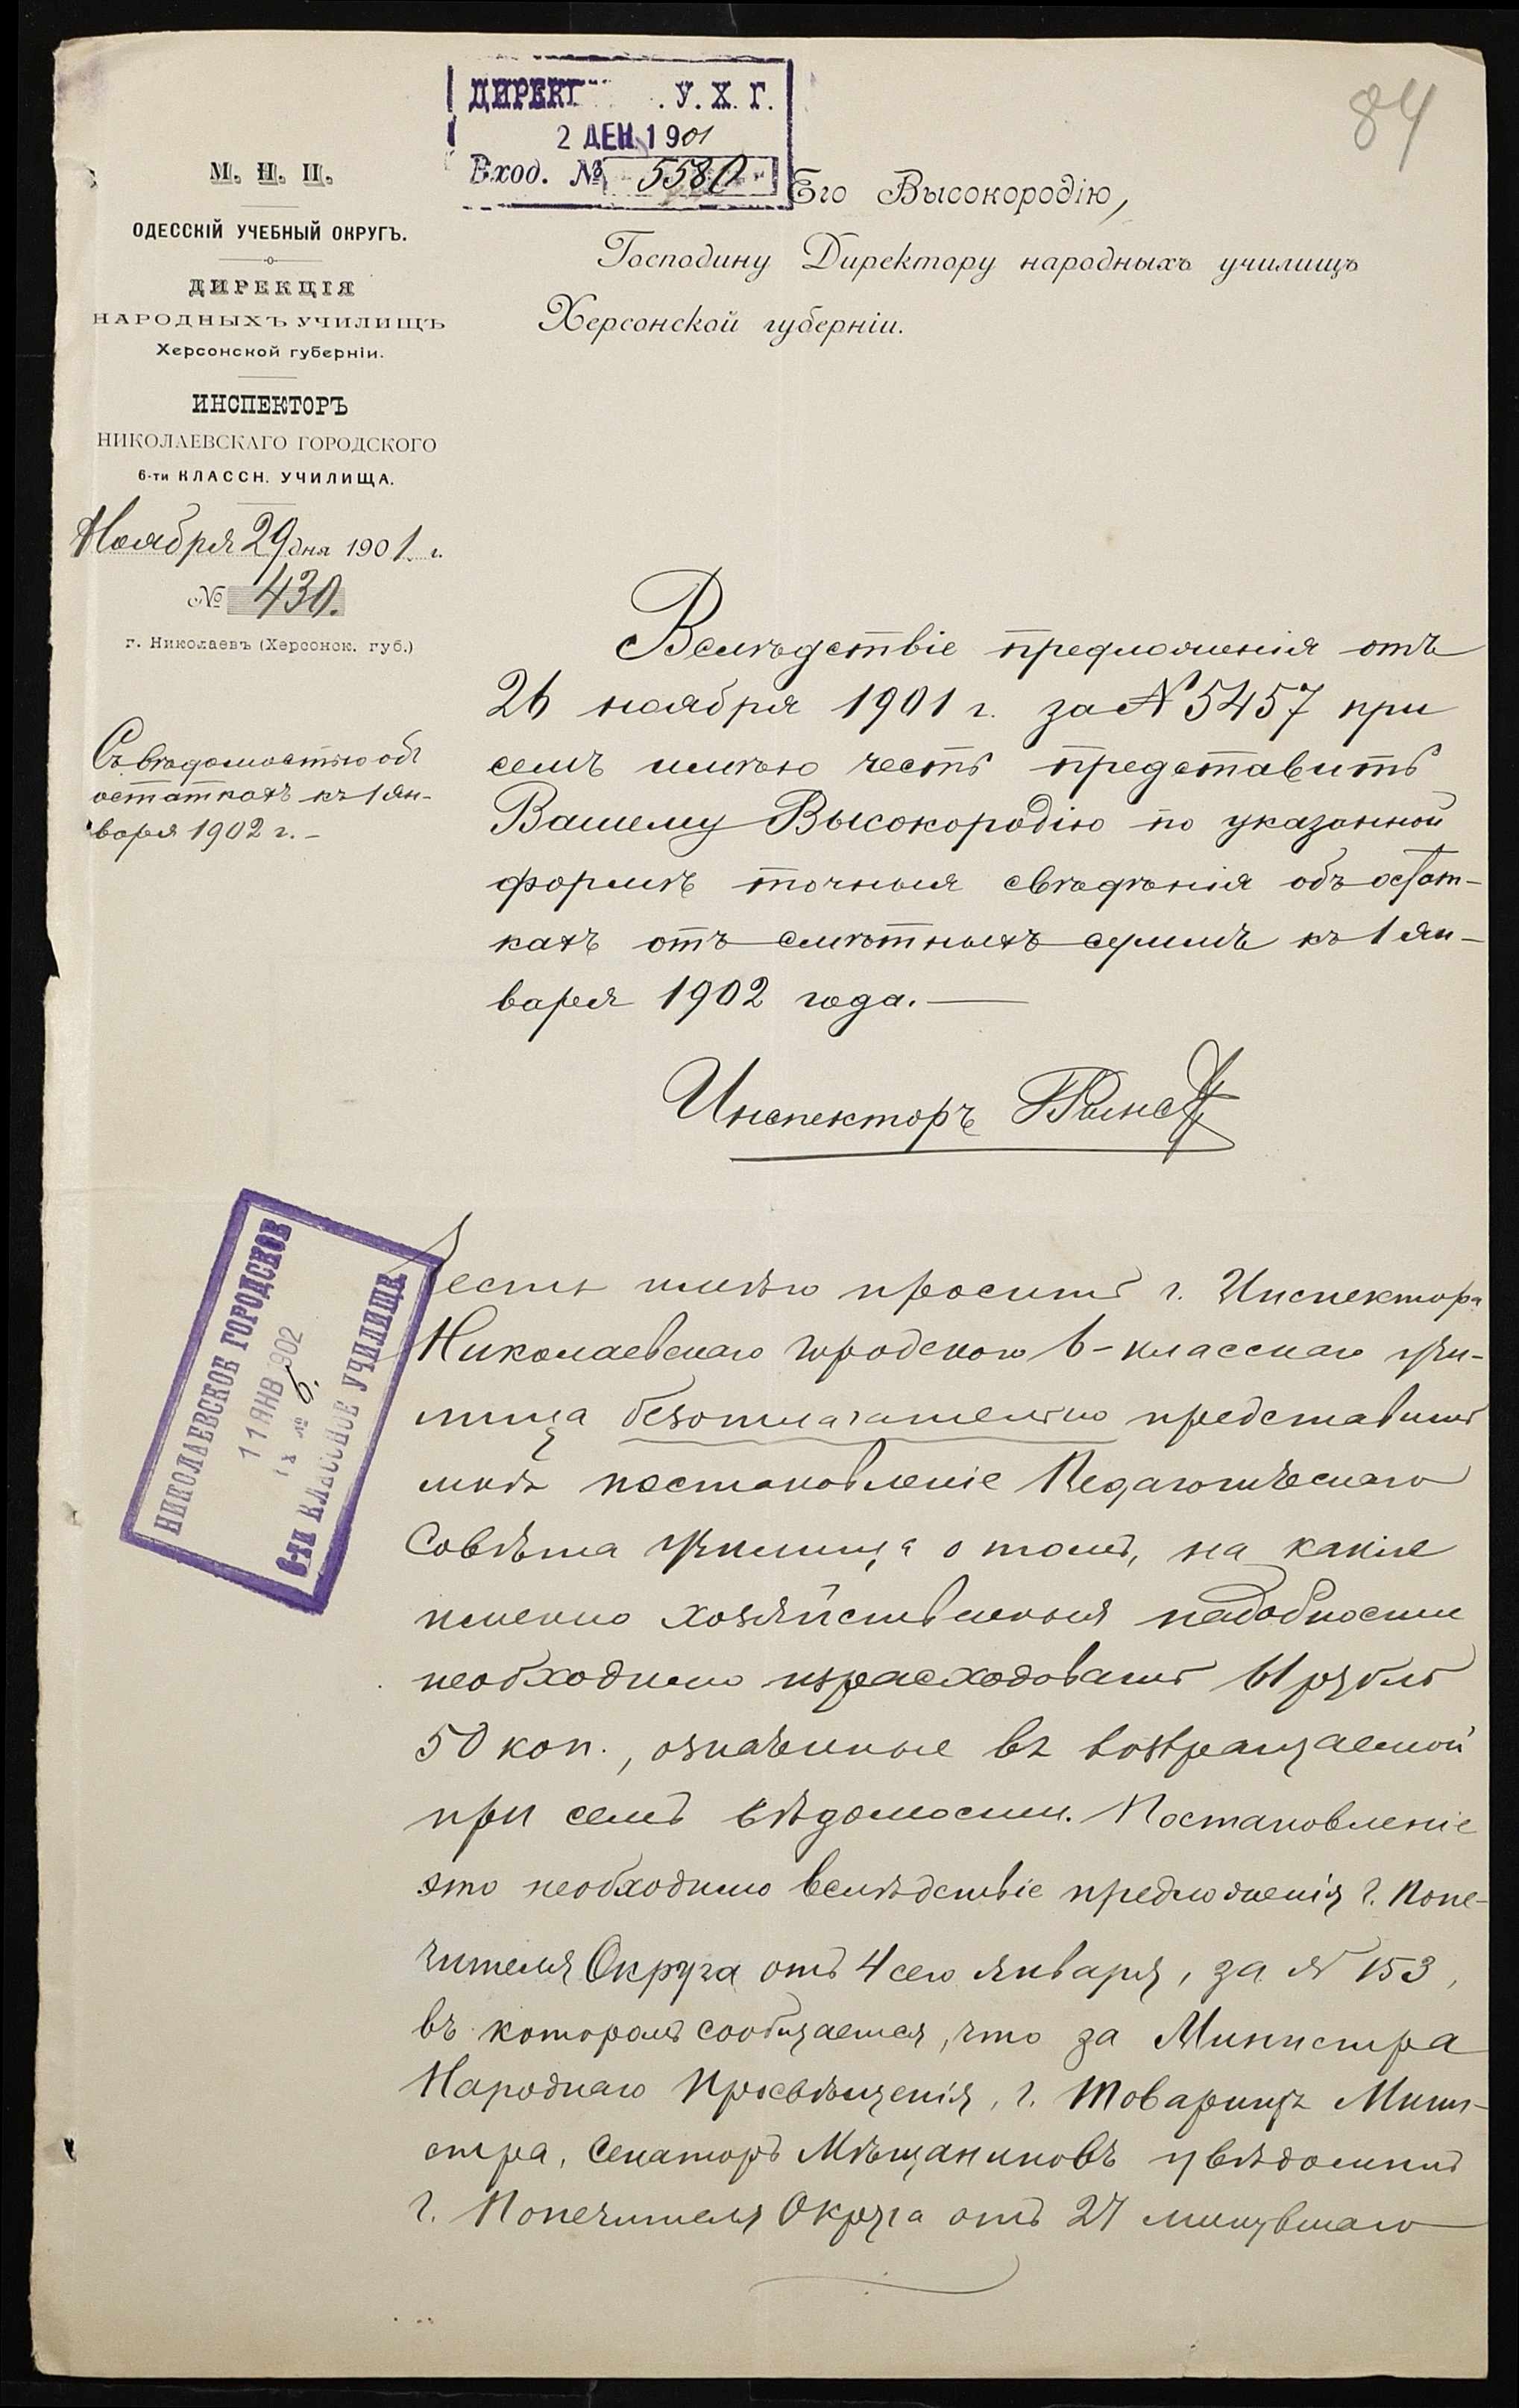 84
ДИРЕКТ . У. Х. Г.
2 ДЕК 1901
Вход. № 5580
М. Н. П.
ОДЕССКІЙ УЧЕБНЫЙ ОКРУГЪ.
ДИРЕКЦІЯ
НАРОДНЫХЪ УЧИЛИЩЪ
Херсонской губерніи.
ИНСПЕКТОРЪ
НИКОЛАЕВСКАГО ГОРОДСКОГО
6-ти КЛАССН. УЧИЛИЩА.
Ноября 29 дня 1901 г.
№ 430.
г. Николаевъ (Херсонск. губ.)
Съ вѣдомостью объ
остаткахъ къ 1 ян-
варя 1902 г. –
Его Высокородію,
Господину Директору народныхъ училищъ
Херсонской губерніи.
Вслѣдствіе предложенія отъ
26 ноября 1901 г. за № 5457 при
семъ имѣю честь представить
Вашему Высокородію по указанной
формѣ точныя свѣдѣнія объ остат-
кахъ отъ смѣтныхъ суммъ къ 1 ян-
варя 1902 года. —
Инспекторъ
НИКОЛАЕВСКОЕ ГОРОДСКОЕ
11 ЯНВ 1902
Вх № 6.
6-ти КЛАССНОЕ УЧИЛИЩЕ
Честь имѣю просить г. Инспектора
Николаевскаго городского 6-класснаго учи-
лища безотлагательно представить
мнѣ постановленіе Педагогическаго
Совѣта училища о томъ, на какія
именно хозяйственныя надобности
необходимо израсходовать 61 рубль
50 коп., означенные въ возвращаемой
при семъ вѣдомости. Постановленіе
это необходимо вслѣдствіе предложенія г. Попе-
чителя Округа отъ 4 сего января, за № 153,
въ которомъ сообщается, что за Министра
Народнаго Просвѣщенія, г. Товарищъ Мини-
стра, Сенаторъ Мѣщаниновъ увѣдомилъ
г. Попечителя Округа отъ 27 минувшаго